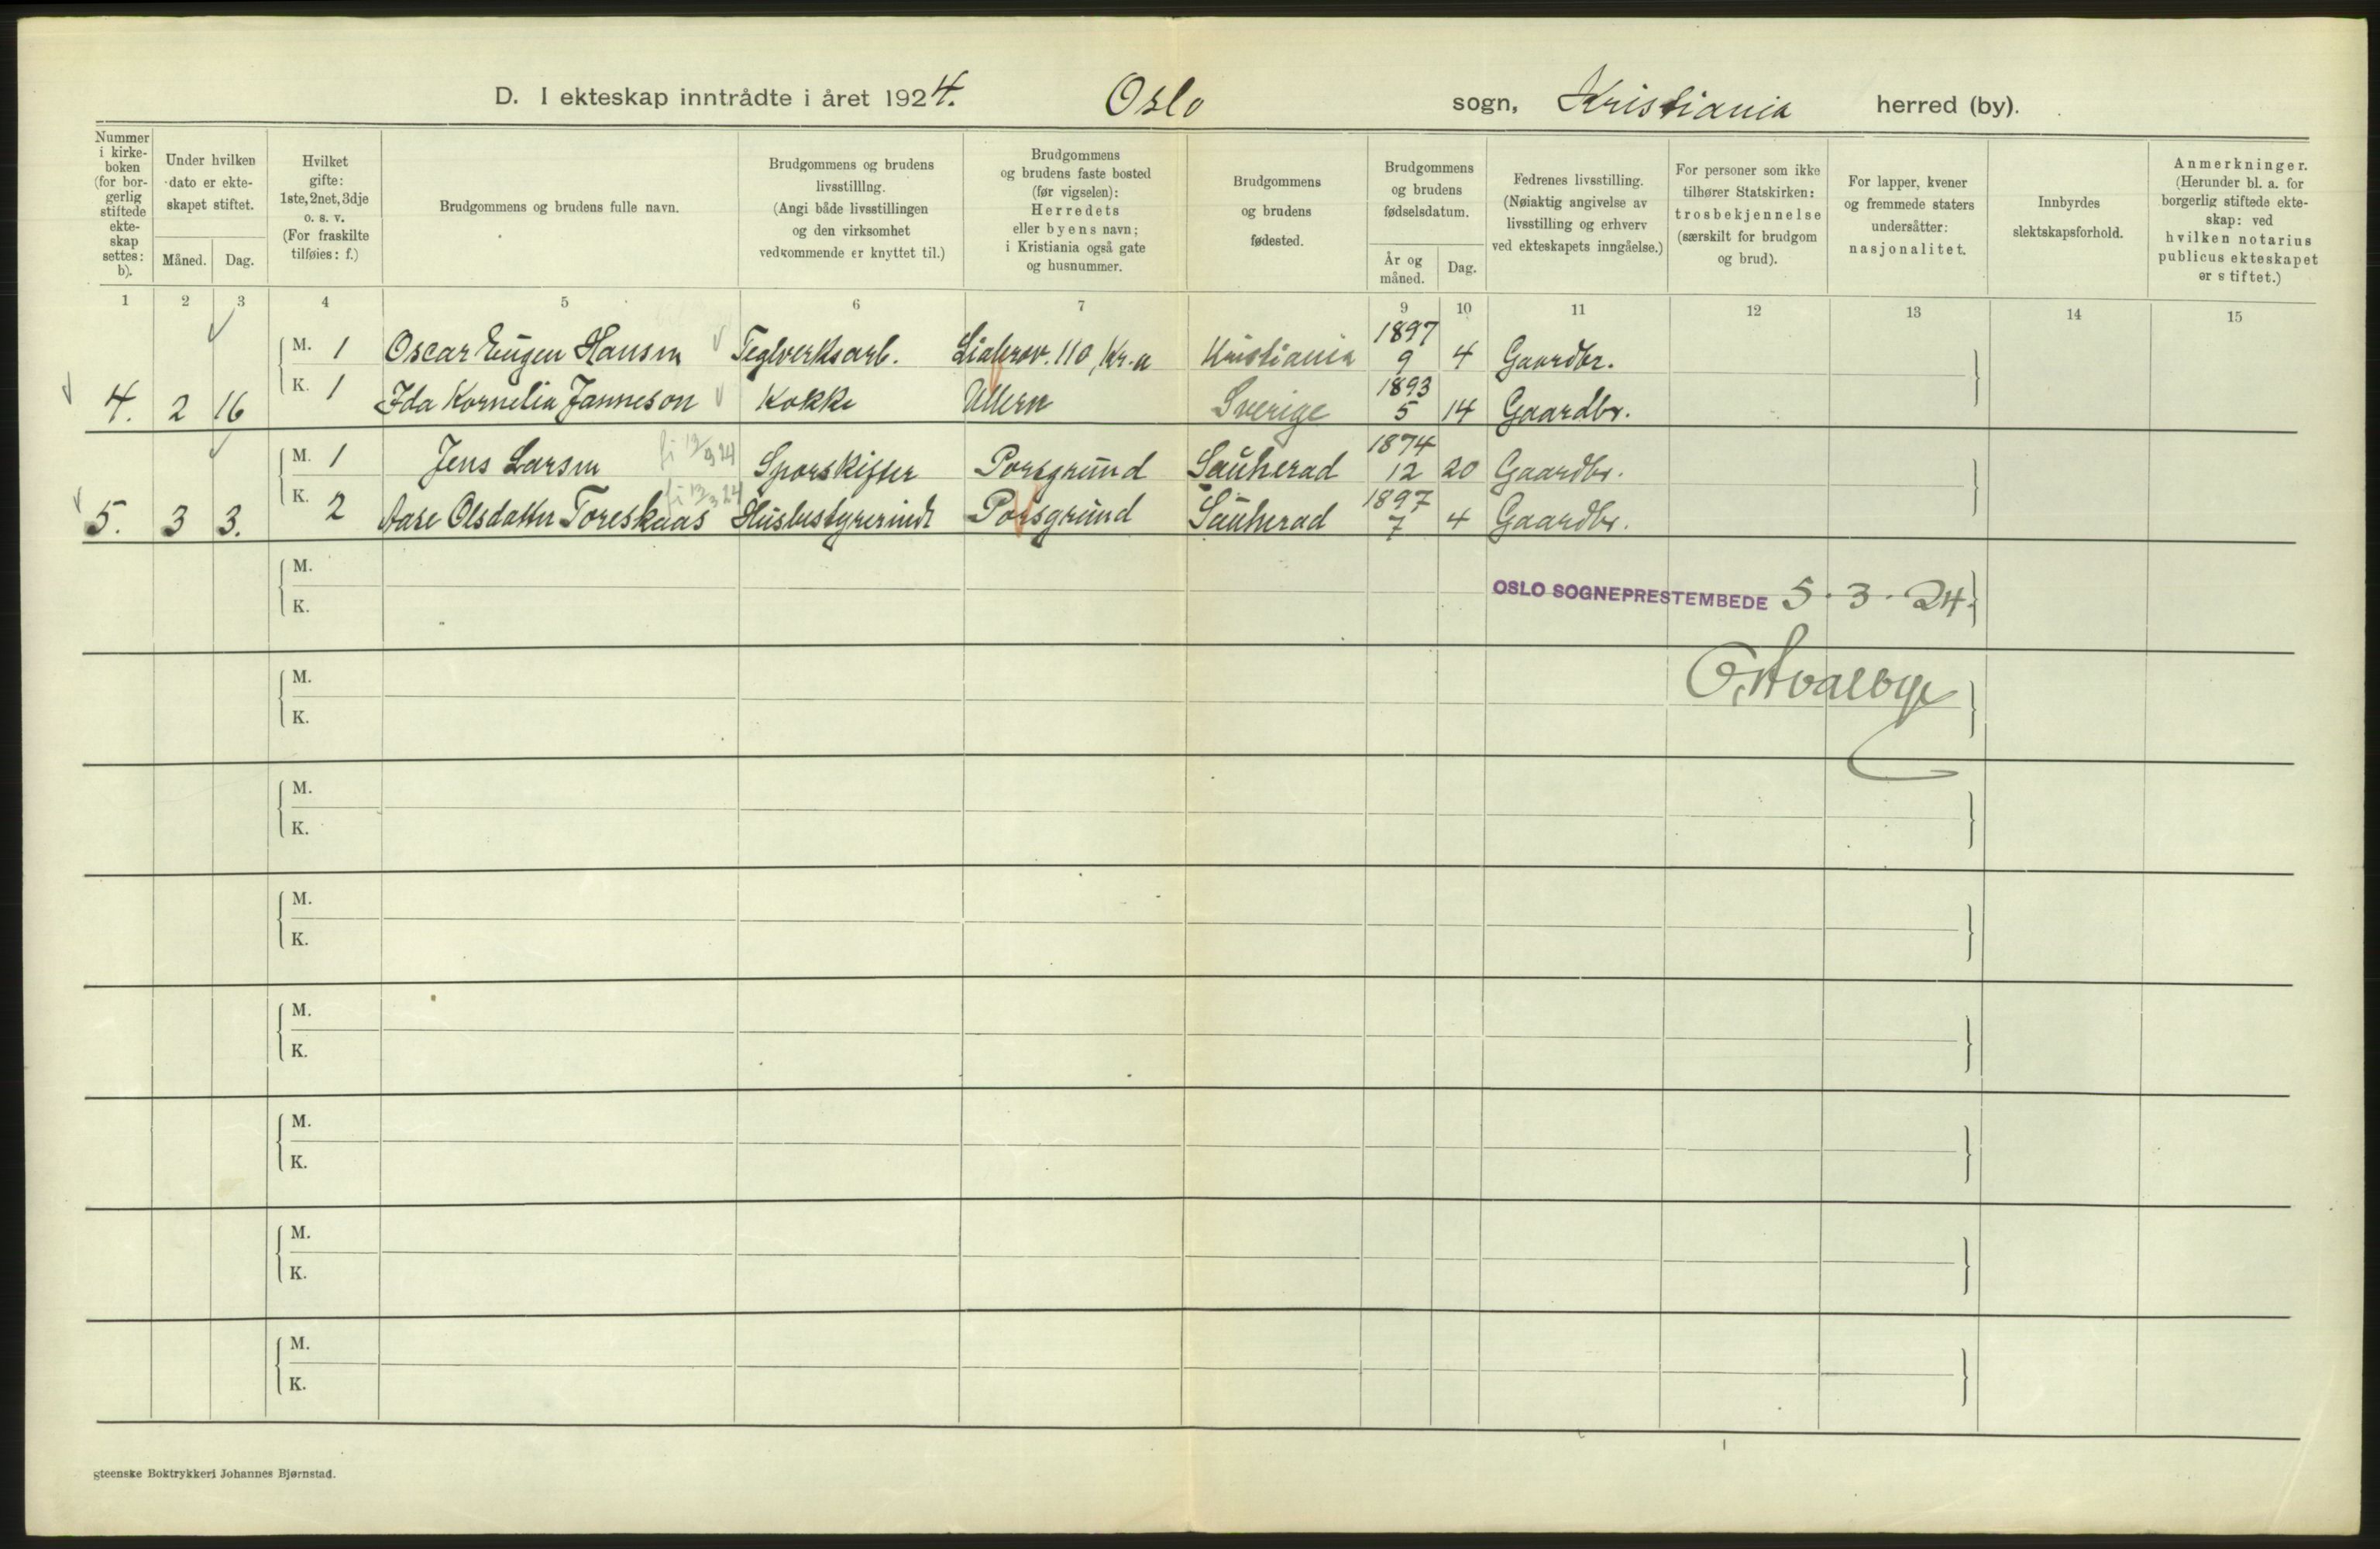 D. I ekteskap inntrådte i året 1924. Oslo sogn, Kristiania herred (by).
Nummer i kirke-boken (for bor-gerlig stiftede ekte-skap settes: b).
Under hvilken dato er ekte-skapet stiftet.
Måned. Dag.
Hvilket gifte: 1ste, 2net, 3dje o. s. v. (For fraskilte tilføies: f.)
Brudgommens og brudens fulle navn.
Brudgommens og brudens livsstilling. (Angi både livsstillingen og den virksomhet vedkommende er knyttet til.)
Brudgommens og brudens faste bosted (før vigselen): Herredets eller byens navn; i Kristiania også gate og husnummer.
Brudgommens og brudens fødested.
Brudgommens og brudens fødselsdatum.
År og måned. Dag.
Fedrenes livsstilling. (Nøiaktig angivelse av livsstilling og erhverv ved ekteskapets inngåelse.)
For personer som ikke tilhører Statskirken: trosbekjennelse (særskilt for brudgom og brud).
For lapper, kvener og fremmede staters undersåtter: nasjonalitet.
Innbyrdes slektskapsforhold.
Anmerkninger. (Herunder bl. a. for borgerlig stiftede ekte-skap: ved hvilken notarius publicus ekteskapet er stiftet.)
1 2 3 4 5 6 7 9 10 11 12 13 14 15
M. 1 Oscar Eugen Hansen Teglverksarb. 110, Kr.a Kristiania 1897 9 4 Gaardbr.
4. 2 16 K. 1 Ida Kornelia Janneson Kokke Ullern Sverige 1893 5 14 Gaardbr.
M. 1 Jens Larsen Sporskifter Porsgrund Sauherad 1874 12 20 Gaardbr.
5. 3 3. K. 2 Aase Olsdatter Toreskaas Husbestyrerinde Porsgrund Sauherad 1897 7 4 Gaardbr.
M.
K.
OSLO SOGNEPRESTEMBEDE 5.3.24.
M.
K.
M.
K.
M.
K.
M.
K.
M.
K.
M.
K.
M.
K.
steenske Boktrykkeri Johannes Bjørnstad.